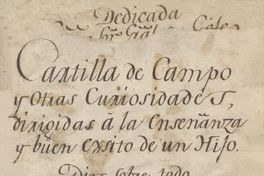 Dedicada
Cartilla de Campo
y otras Curiosidades,
dirigidas â la enseñanza
y buen exsito de un Hijo.
Dios sobre todo